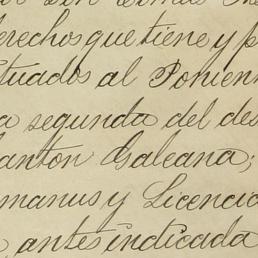 por Don Tomas
derechos que tiene y p
situados al Ponien
a segunda del des
Canton Galeana;
manus y Licencia
antes indicada